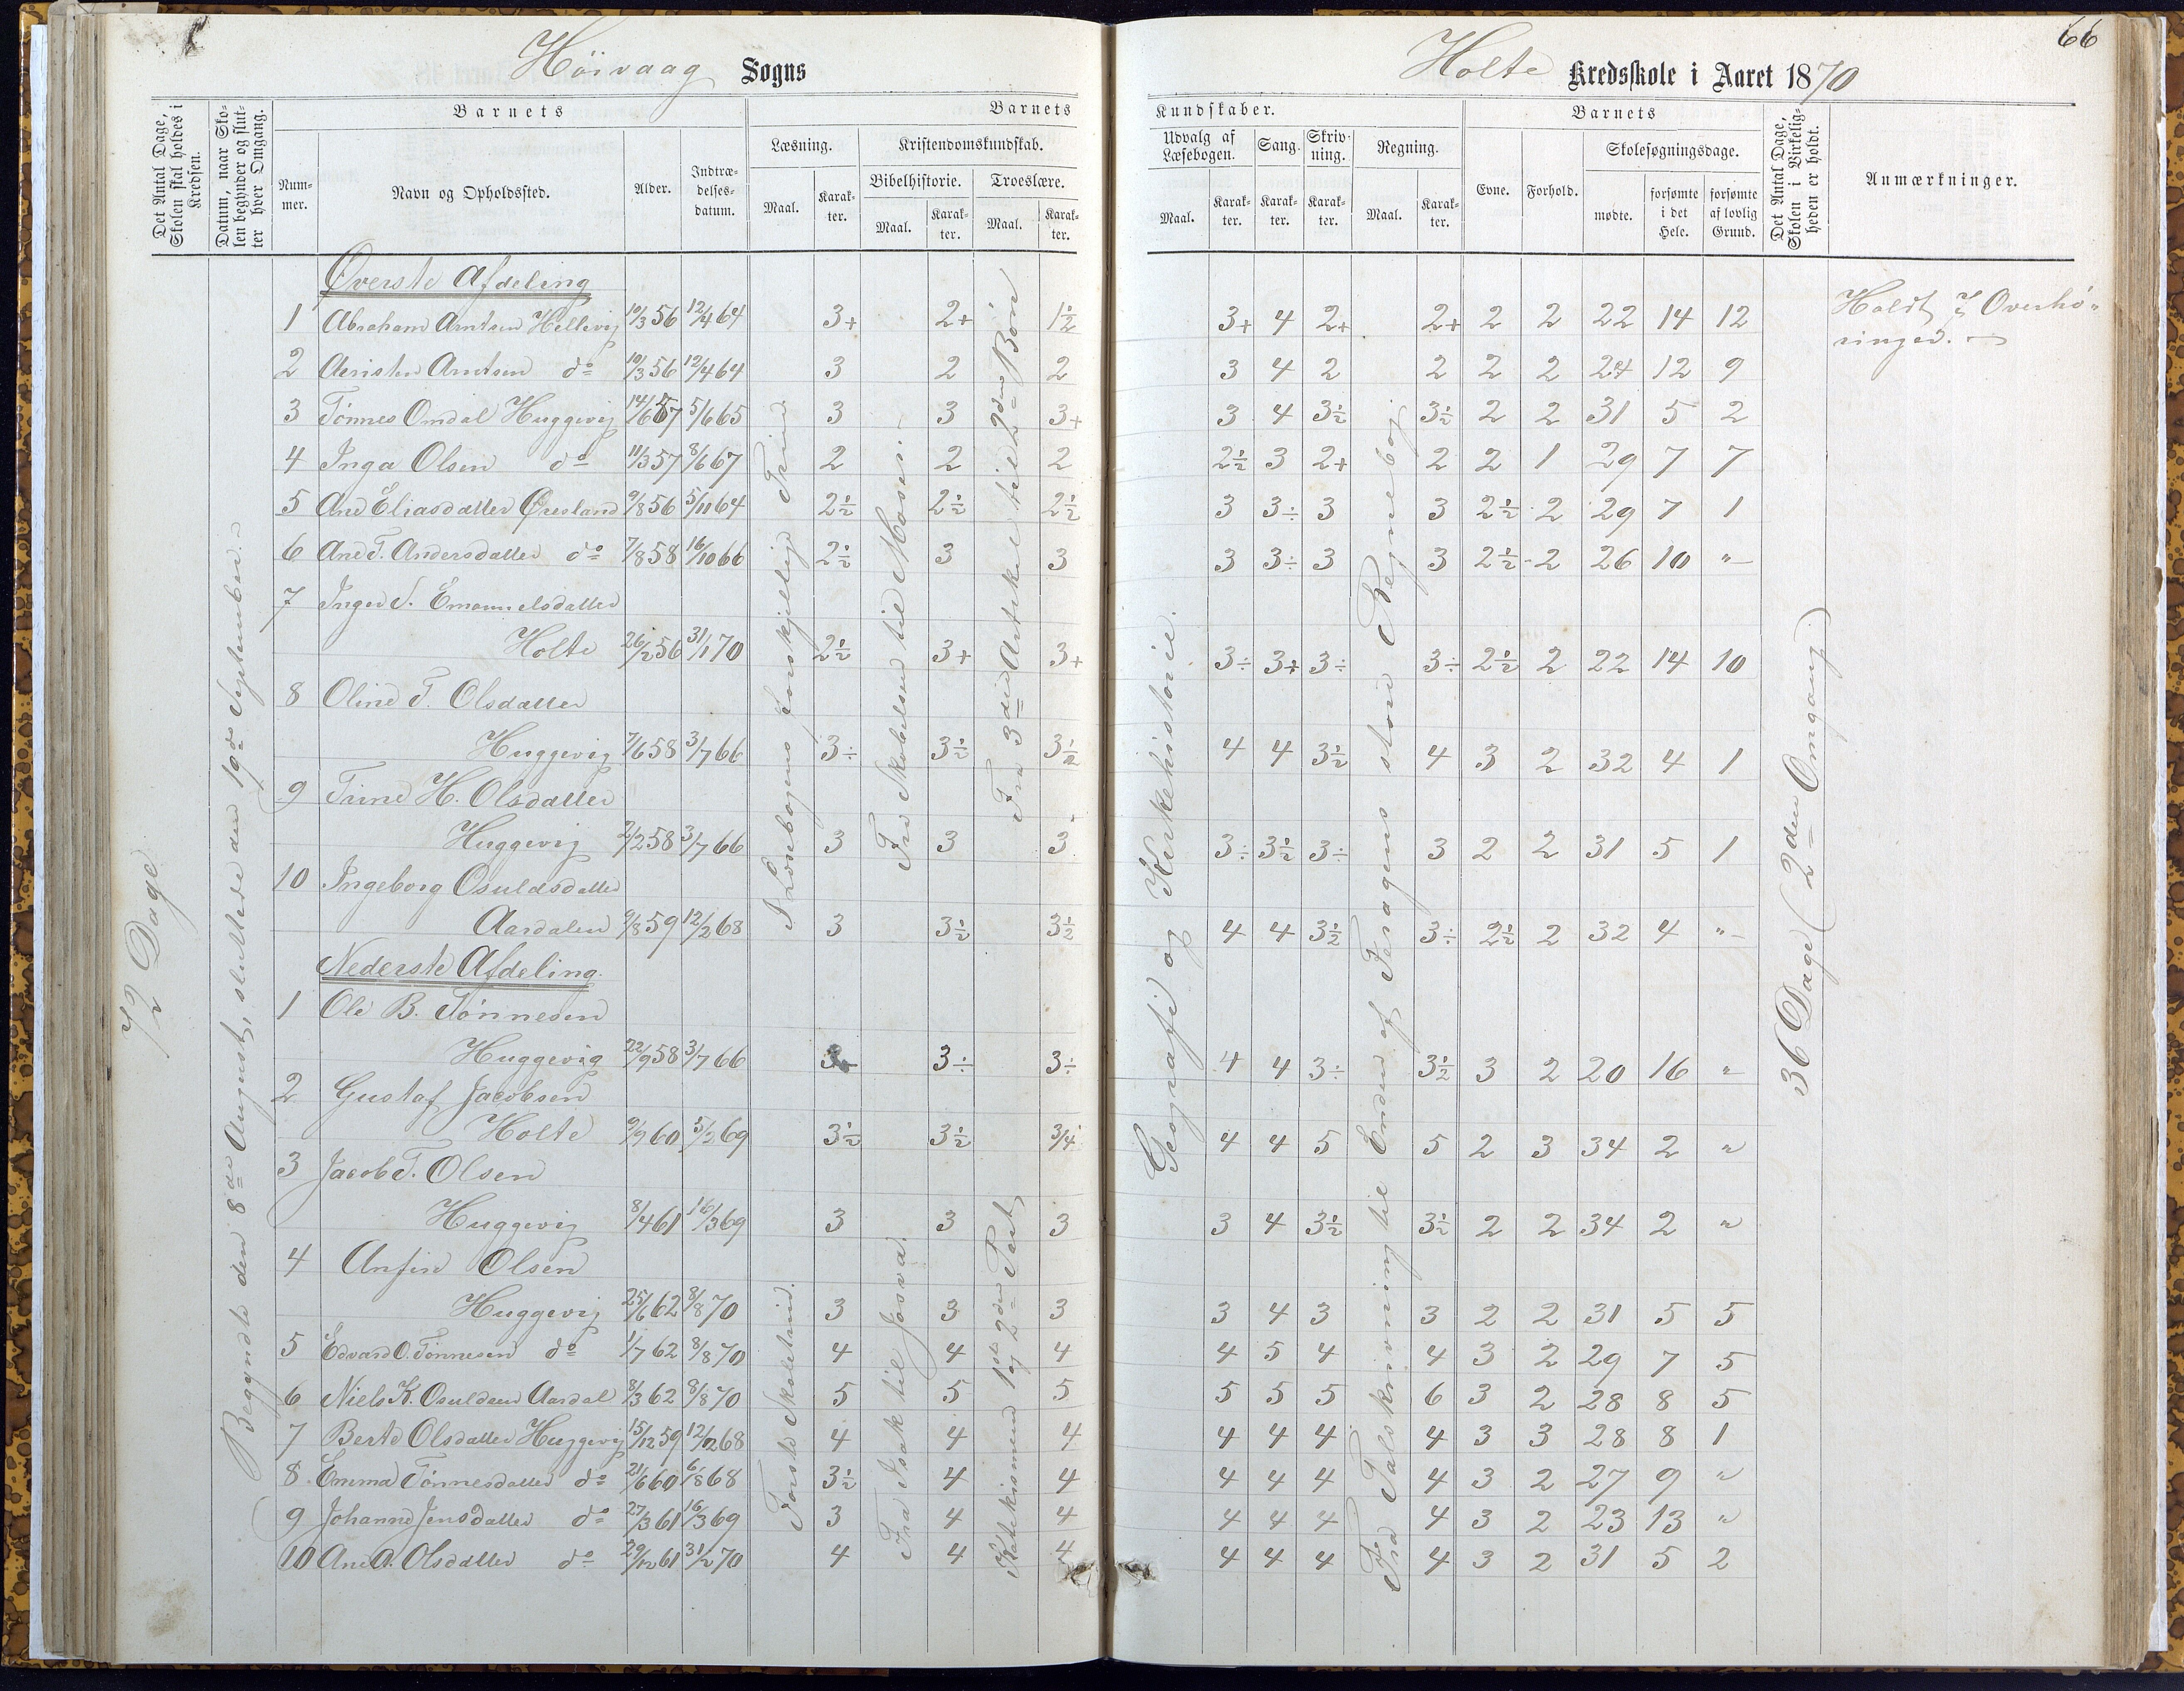 Höivaag Sogns
Holte Kredsskole i Aaret 1870
66
Det Antal Dage, Skolen skal holdes i Kredsen.
Datum, naar Skolen begynder og slutter hver Omgang.
Barnets
Nummer.
Navn og Opholdssted.
Alder.
Indtrædelsesdatum.
Barnets Kundskaber.
Læsning.
Maal.
Karakter.
Kristendomskundskab.
Bibelhistorie.
Maal.
Karakter.
Troeslære.
Maal.
Karakter.
Udvalg af Læsebogen.
Maal.
Karakter.
Sang.
Karakter.
Skrivning.
Karakter.
Regning.
Maal.
Karakter.
Barnets
Evne.
Forhold.
Skolesøgningsdage.
mødte.
forsømte i det Hele.
forsømte af lovlig Grund.
Det Antal Dage, Skolen i Virkeligheden er holdt.
Anmærkninger.
72 Dage
Begyndte den 8de August, sluttede den 19de September.
I Læsebogens forskjellige Trin
Fra Skabelsen til Moses.
Fra 3die Artikel til 2den Bøn
Geografi og Kirkehistorie.
Enden af Faragens store Regnebog.
36 Dage (2den Omgang)
Holdt 7 Overhøringer.
Øverste Afdeling
1 Abraham Arntsen Hellevig 10/3 56 12/4 64 3+ 2+ 1½ 3+ 4 2+ 2+ 2 2 22 14 12
2 Arntsen do 10/3 56 12/4 64 3 2 2 3 4 2 2 2 2 24 12 9
3 Tönnes Omdal Huggevig 14/6 57 5/6 65 3 3 3+ 3 4 3½ 3½ 2 2 31 5 2
4 Inga Olsen do 11/3 57 8/6 67 2 2 2 2½ 3 2+ 2 2 1 29 7 7
5 Ane Eliasdatter Øresland 9/8 56 5/11 64 2½ 2½ 2½ 3 3÷ 3 3 2½ 2 29 7 1
6 Ane T. Andersdatter do 7/8 58 16/10 66 2½ 3 3 3 3÷ 3 3 2½ 2 26 10 "
7 Inger S. Emanuelsdatter
Holte 26/2 56 31/1 70 2½ 3+ 3+ 3÷ 3+ 3÷ 3÷ 2½ 2 22 14 10
8 Oline T. Olsdatter
Huggevig 7/6 58 3/7 66 3÷ 3½ 3½ 4 4 3½ 4 3 2 32 4 1
9 Trine H. Olsdatter
Huggevig 2/2 58 3/7 66 3 3 3 3÷ 3½ 3÷ 3 2 2 31 5 1
10 Ingeborg Osuldsdatter
Aardalen 9/8 59 12/2 68 3 3½ 3½ 4 4 3½ 3÷ 2½ 2 32 4 "
Nederste Afdeling.
1 Ole B. Tönnesen
Huggevig 22/9 58 3/7 66 3÷ 3÷ 4 4 3÷ 3½ 3 2 20 16 "
2 Gustaf Jacobsen
Holte 9/9 60 5/2 69 3½ 3½ 3/4 4 4 5 5 2 3 34 2 "
3 Jacob T. Olsen
Huggevig 8/4 61 16/3 69 3 3 3 3 4 3½ 3½ 2 2 34 2 "
4 Anfin Olsen
Huggevig 25/6 62 8/8 70 3 3 3 3 4 3 3 2 2 31 5 5
5 Edvard O. Tönnesen do 1/7 62 8/8 70 4 4 4 4 5 4 4 3 2 29 7 5
6 Niels K. Osuldsen Aardal 8/3 62 8/8 70 5 5 5 5 5 5 6 3 2 28 8 5
7 Berte Olsdatter Huggevig 15/12 59 12/2 68 4 4 4 4 4 4 4 3 3 28 8 1
8 Emma Tönnesdatter do 21/6 60 6/8 68 3½ 4 4 4 4 4 4 3 2 27 9 "
9 Johanne Jensdatter do 27/3 61 16/3 69 3 4 4 4 4 4 4 3 2 23 13 "
10 Ane A. Olsdatter do 29/12 61 31/2 70 4 4 4 4 4 4 4 3 2 31 5 2
Første Skoletrin.
Fra Isak til Josva.
Katekismen 1ste og 2den Part
Fra Talskrivning til